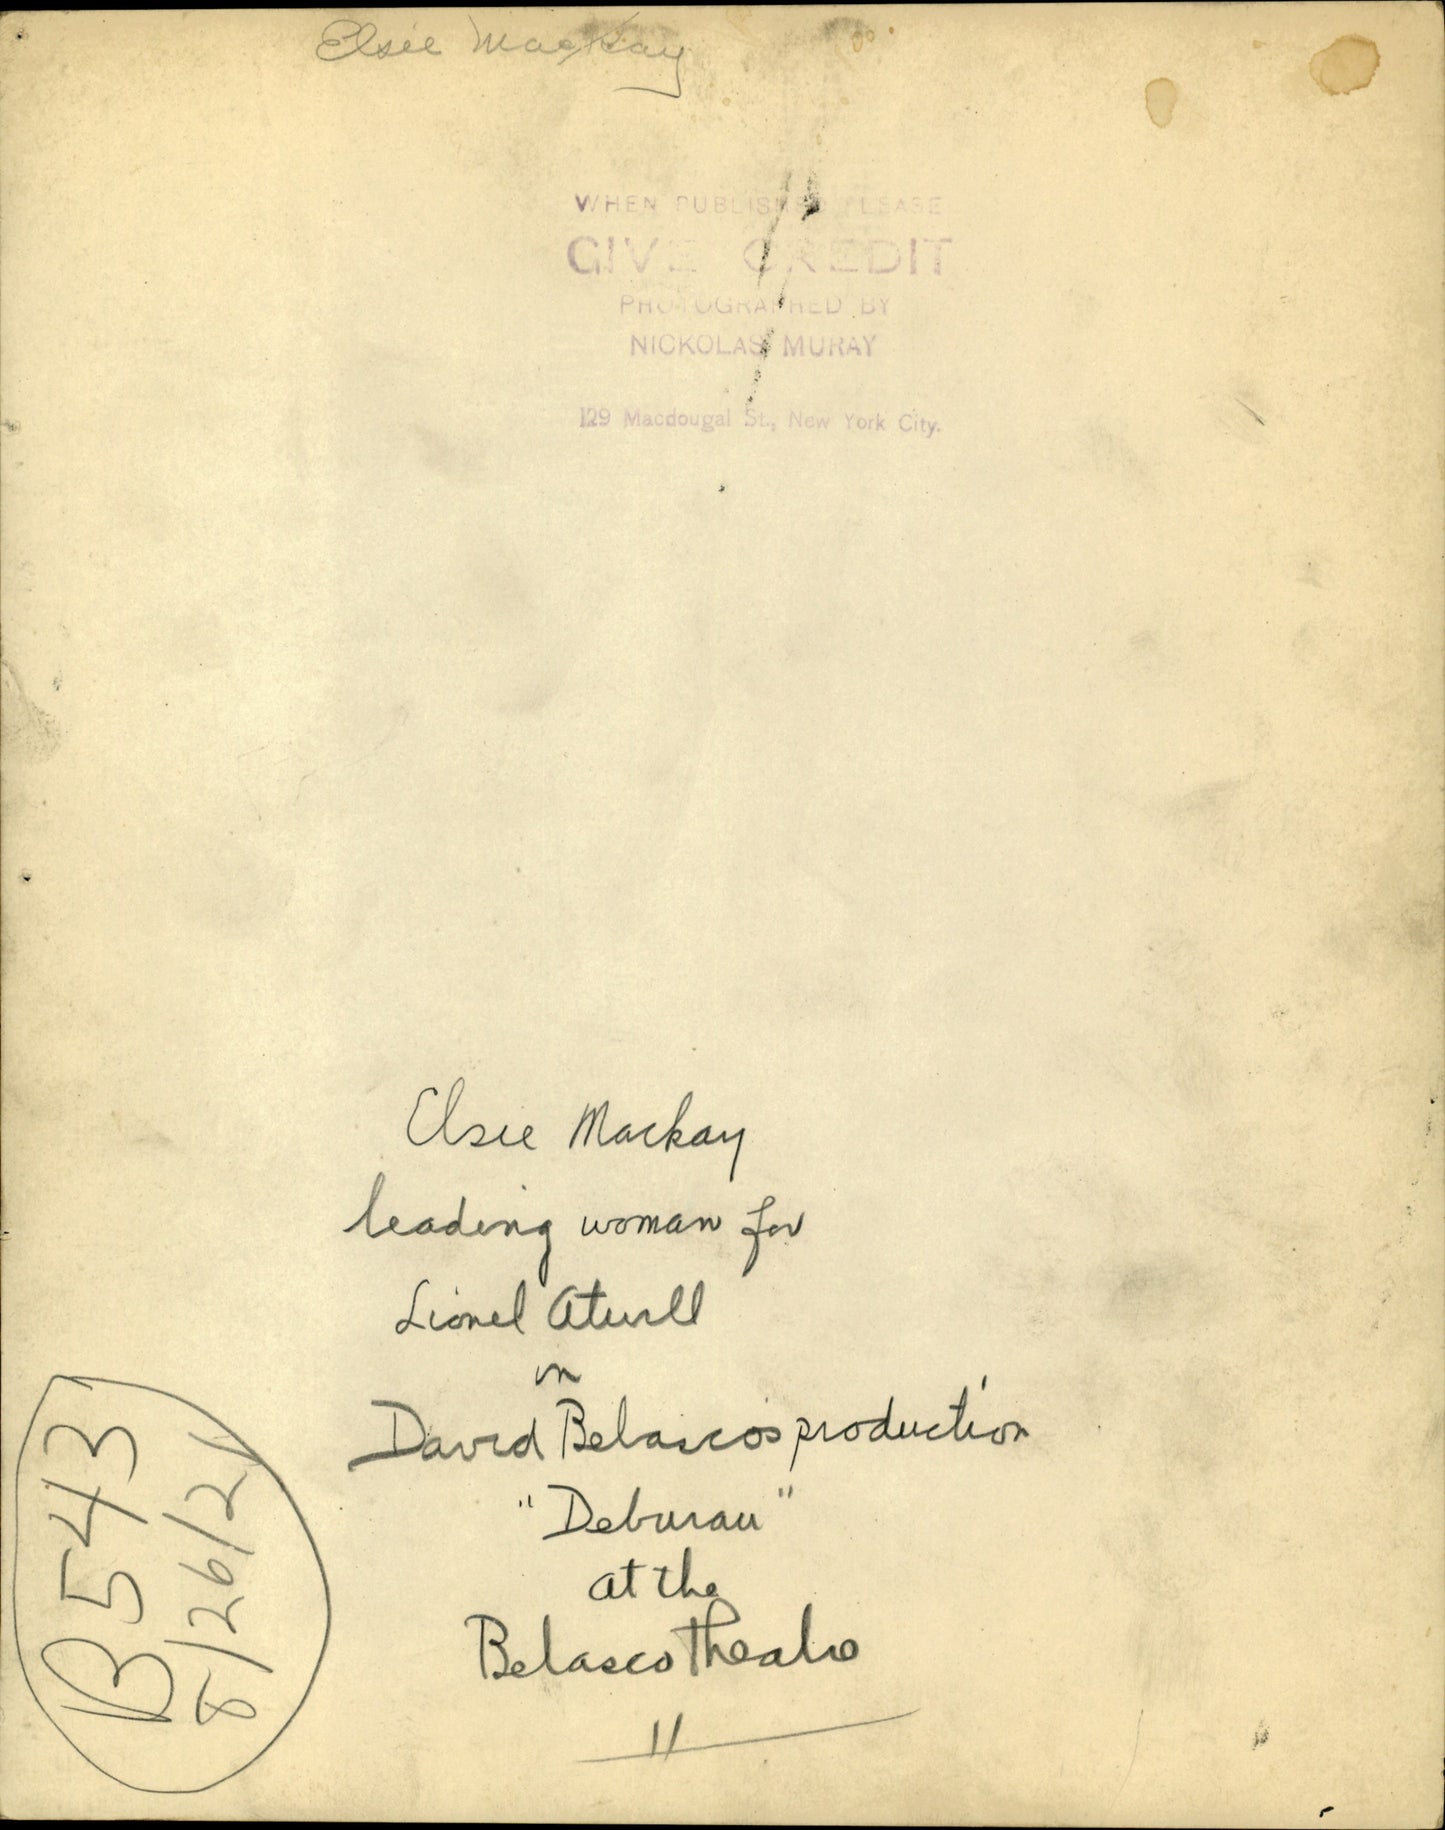 Elsie MacKay
WHEN PUBLISHED PLEASE
GIVE CREDIT
PHOTOGRAPHED BY
NICKOLAS MURAY
129 Macdougal St., New York City.
Elsie Mackay
leading woman for
Lionel Atwill
in
David Belasco's production
"Deburau"
at the
Belasco Theatre
11
B543
8/26/21